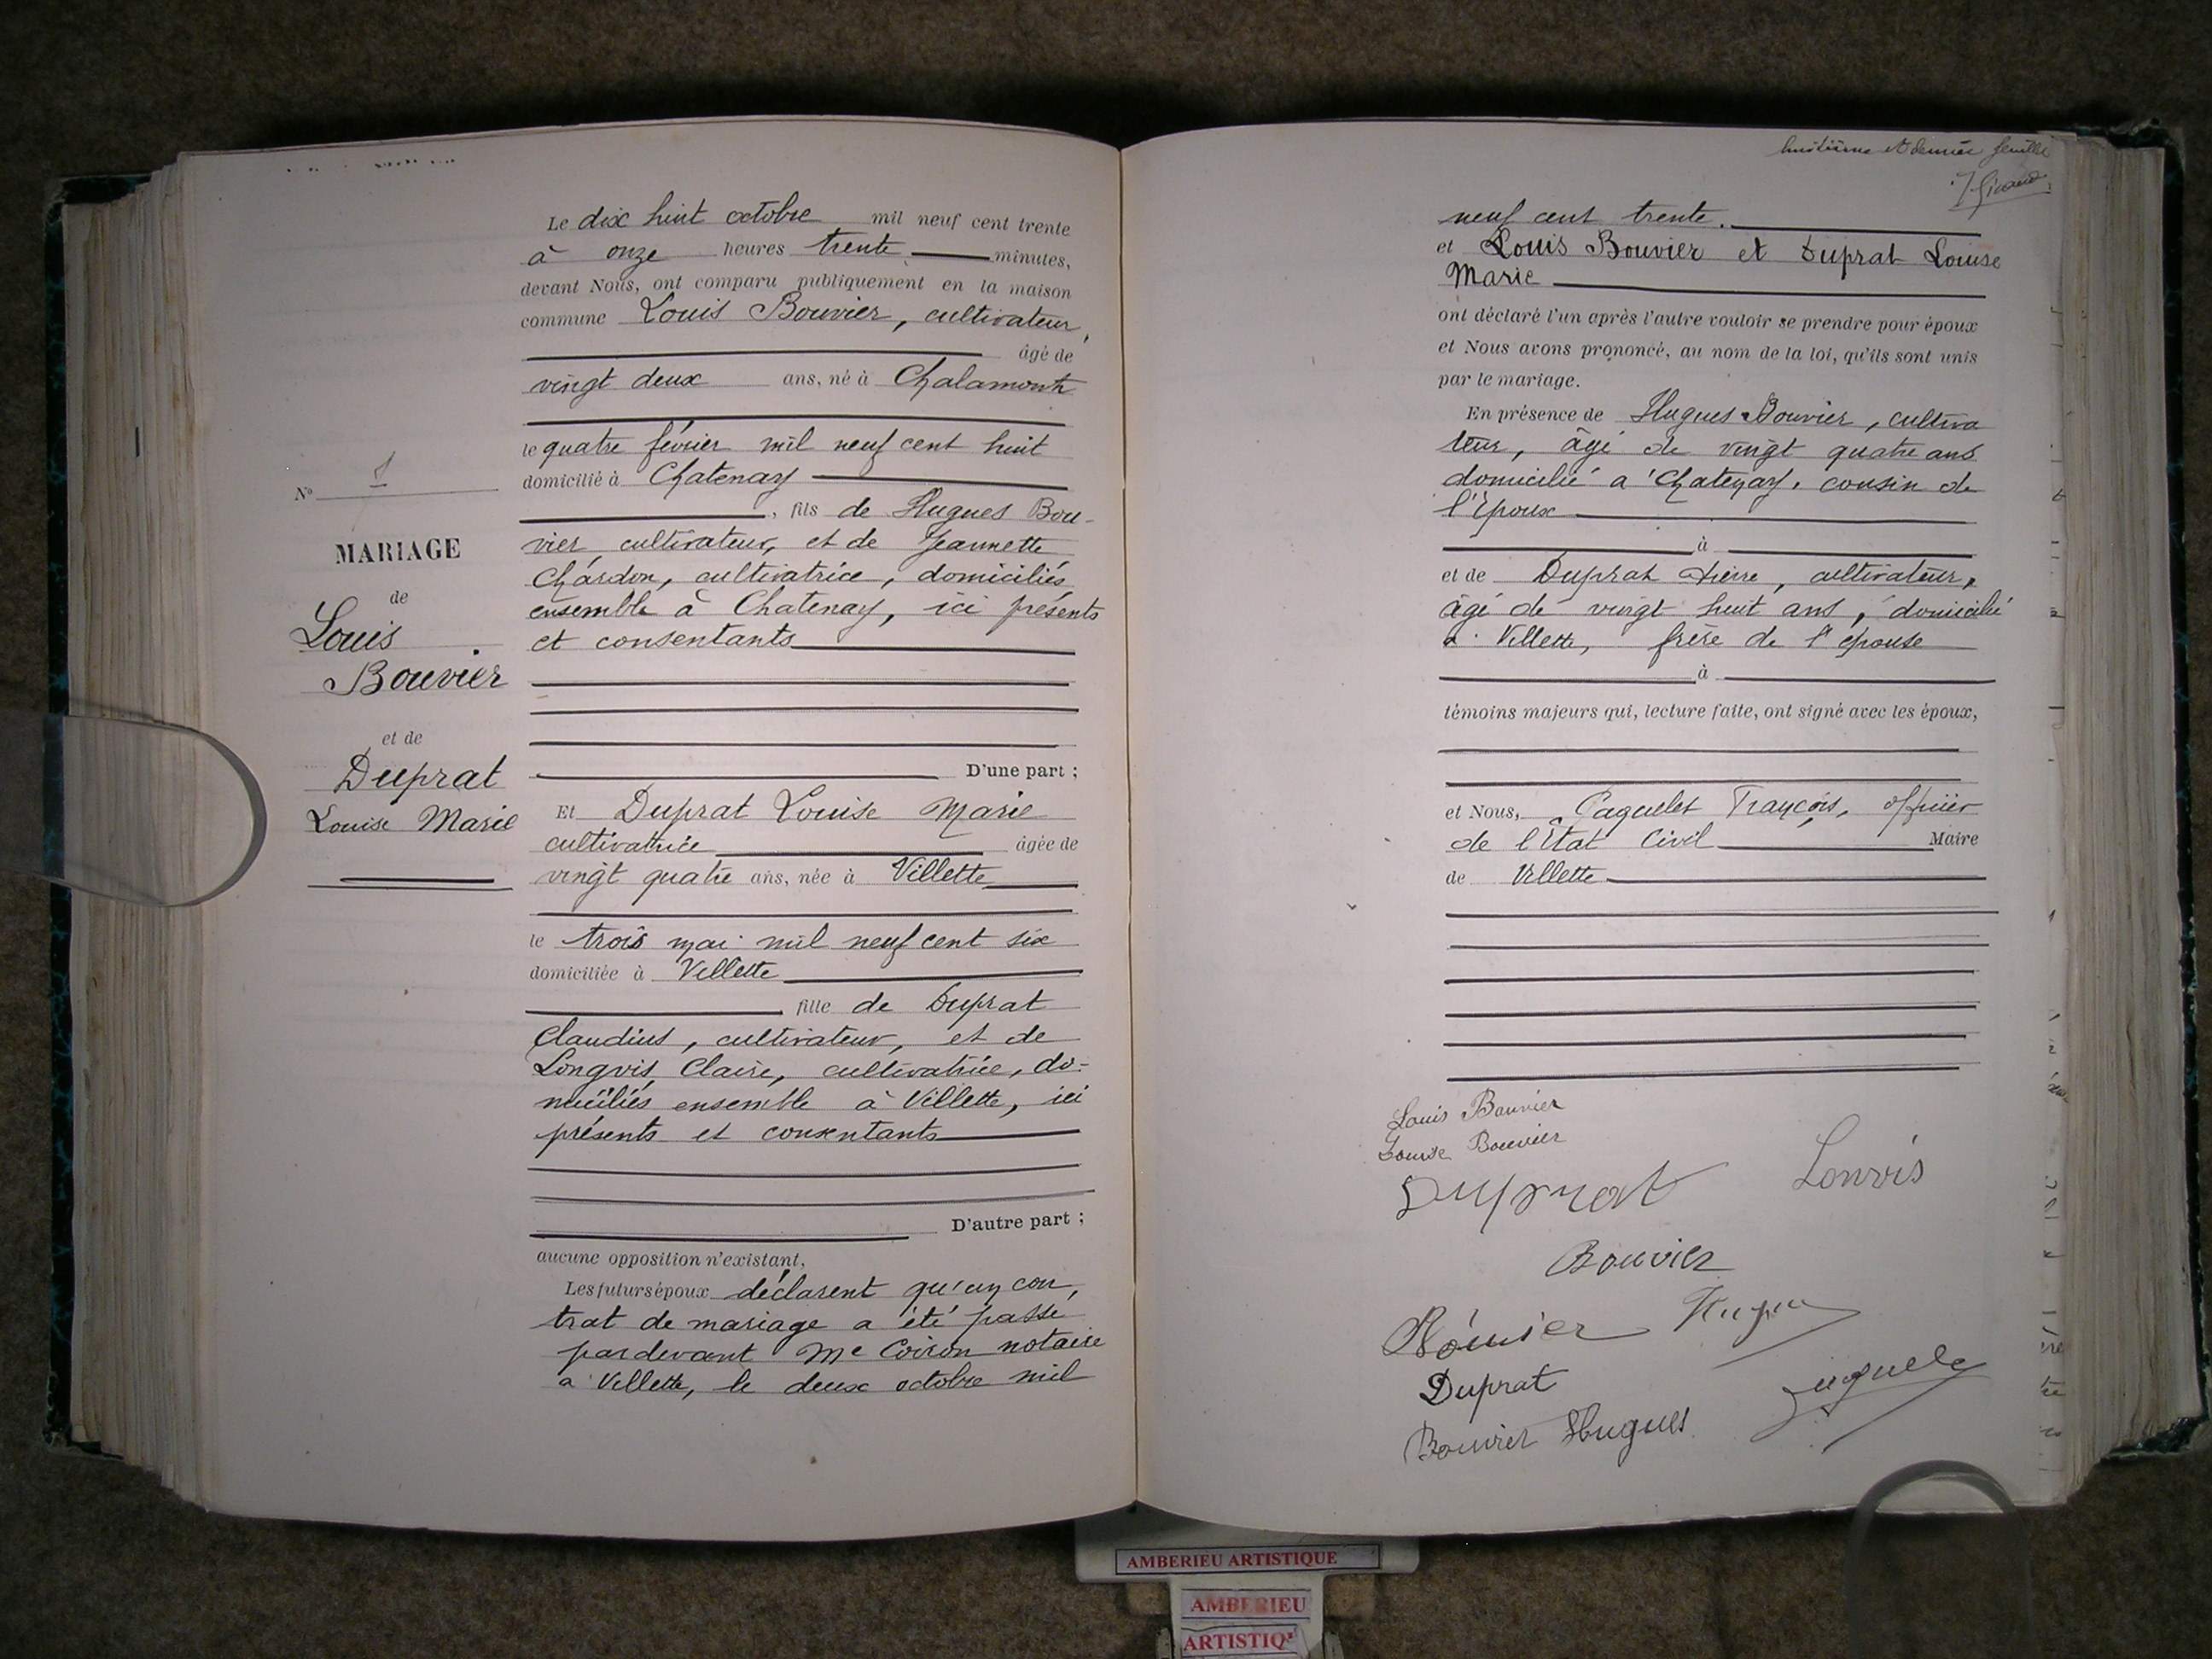 N° 8
MARIAGE
de
Louis
Bouvier
et de
Duprat
Louise Marie
Le dix huit octobre mil neuf cent trente
à onze heures trente minutes,
devant Nous, ont comparu publiquement en la maison
commune Louis Bouvier, cultivateur,
âgé de
vingt deux ans, né à Chalamont
le quatre février mil neuf cent huit
domicilié à Chatenay
, fils de Hugues Bou-
vier, cultivateur, et de Jeannette
Chardon, cultivatrice, domiciliés
ensemble à Chatenay, ici présents
et consentants
D'une part ;
Et Duprat Louise Marie
cultivatrice âgée de
vingt quatre ans, née à Villette
le trois mai mil neuf cent six
domiciliée à Villette
fille de Duprat
Claudius, cultivateur, et de
Longvis Claire, cultivatrice, do-
miciliés ensemble à Villette, ici
présents et consentants
D'autre part ;
aucune opposition n'existant,
Les futurs époux déclarent qu'un con,
trat de mariage a été passé
pardevant Me Coiron notaire
a Villette, le deux octobre mil
huitième et dernier feuillet
neuf cent trente.
et Louis Bouvier et Duprat Louise
Marie
ont déclaré l'un après l'autre vouloir se prendre pour époux
et Nous avons prononcé, au nom de la loi, qu'ils sont unis
par le mariage.
En présence de Hugues Bouvier, cultiva
teur, âgé de vingt quatre ans
domicilié a Chatenay, cousin de
l'époux
à
et de Duprat Pierre, cultivateur,
âgé de vingt huit ans, domicilié
a Villette, frère de l'epouse
à
témoins majeurs qui, lecture faite, ont signé avec les époux,
et Nous, François, officier
de l'Etat Civil Maire
de Villette
Louis Bouvier
Louise Bouvier
Duprat Lonvis
Bouvier
Bouvier
Duprat
Bouvier Hugues
AMBERIEU ARTISTIQUE
AMBERIEU
ARTISTIQ